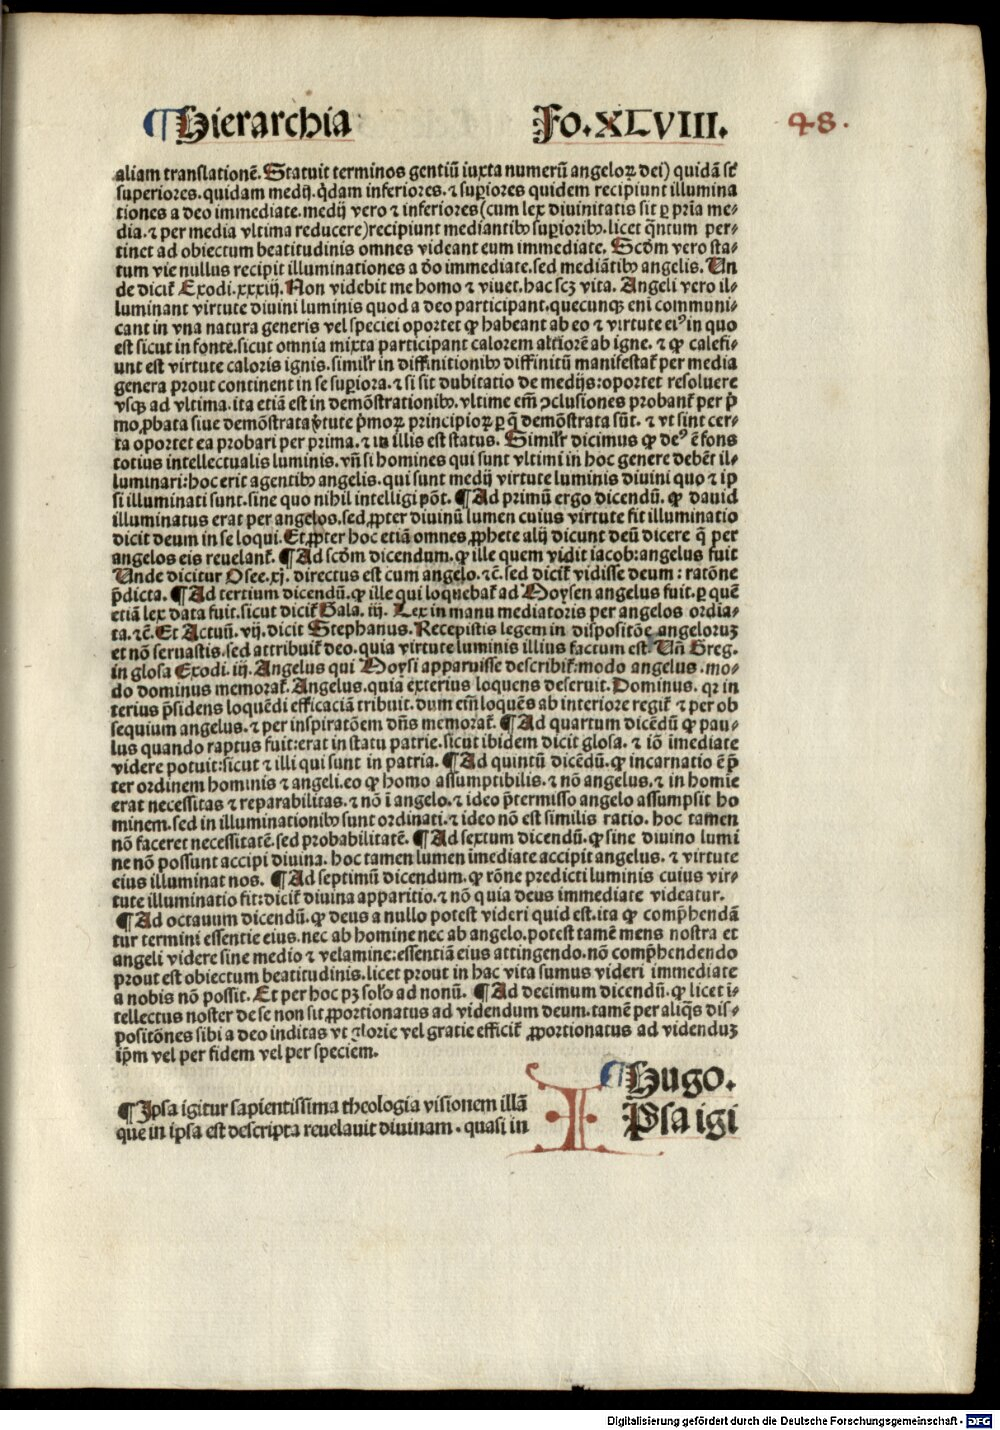 ¶Hierarchia
Fo.XLVIII.
48.
aliam translationē. Statuit terminos gentiū iuxta numerū angeloꝝ dei) quidā sūt
superiores. quidam medij. q̇dam inferiores. ⁊ suꝑiores quidem recipiunt illumina
tiones a deo immediate. medij vero ⁊ inferiores (cum lex diuinitatis sit ꝑ pria me-
dia. ⁊ per media vltima reducere) recipiunt mediantibꝰ suꝑioribꝰ. licet q̄ntum per-
tinet ad obiectum beatitudinis omnes videant eum immediate. Scḋm vero sta-
tum vie nullus recipit illuminationes a ḋo immediate. sed mediātibꝰ angelis. Un
de dicit̄ Exodi. xxxiij. Non videbit me homo ⁊ viuet. hac scꝫ vita. Angeli vero il-
luminant virtute diuini luminis quod a deo participant. quecunqꝫ eni communi-
cant in vna natura generis vel speciei oportet ꝙ habeant ab eo ⁊ virtute eiꝰ in quo
est sicut in fonte. sicut omnia mixta participant calorem altiorē ab igne. ⁊ ꝙ calefi-
unt est virtute caloris ignis. similr̄ in diffinitionibꝰ diffinitū manifestat̄ per media
genera prout continent in se suꝑiora. ⁊ si sit dubitatio de medijs: oportet resoluere
vsqꝫ ad vltima. ita etiā est in demōstrationibꝰ. vltime em̄ ꝯclusiones probant̄ per p̄
mo ꝓbata siue demōstrata ꝟtute p̄moꝝ principioꝝ ꝑ q̄ demōstrata sūt. ⁊ vt sint cer-
ta oportet ea probari per prima. ⁊ in illis est status. Similr̄ dicimus ꝙ deꝰ ē fons
totius intellectualis luminis. vn̄ si homines qui sunt vltimi in hoc genere debēt il-
luminari: hoc erit agentibꝰ angelis. qui sunt medij virtute luminis diuini quo ⁊ ip
si illuminati sunt. sine quo nihil intelligi pōt. ¶Ad primū ergo dicendū. ꝙ dauid
illuminatus erat per angelos. sed ꝓpter diuinū lumen cuius virtute fit illuminatio
dicit deum in se loqui. Et ꝓpter hoc etiā omnes ꝓphete alij dicunt deū dicere q̄ per
angelos eis reuelant̄. ¶Ad scḋm dicendum. ꝙ ille quem vidit iacob: angelus fuit
Unde dicitur Osee. xj. directus est cum angelo. ⁊c̄. sed dicit̄ vidisse deum: ratōne
p̄dicta. ¶Ad tertium dicendū. ꝙ ille qui loquebat̄ ad Moysen angelus fuit. ꝑ quē
etiā lex data fuit. sicut dicit̄ Gala. iij. Lex in manu mediatoris per angelos ordia-
ta. ⁊c̄. Et Actuū. vij. dicit Stephanus. Recepistis legem in dispositōe angeloruꝫ
et nō seruastis. sed attribuit̄ deo. quia virtute luminis illius factum est. Un̄ Greg.
in glosa Exodi. iij. Angelus qui Moysi apparuisse describit̄: modo angelus. mo-
do dominus memorat̄. Angelus. quia exterius loquens deseruit. Dominus. qr in
terius p̄sidens loquēdi efficaciā tribuit. dum em̄ loquēs ab interiore regit̄ ⁊ per ob
sequium angelus. ⁊ per inspiratōem dn̄s memorat̄. ¶Ad quartum dicēdū ꝙ pau-
lus quando raptus fuit: erat in statu patrie. sicut ibidem dicit glosa. ⁊ iō imediate
videre potuit: sicut ⁊ illi qui sunt in patria. ¶Ad quintū dicēdū. ꝙ incarnatio ē p̄
ter ordinem hominis ⁊ angeli. eo ꝙ homo assumptibilis. ⁊ nō angelus. ⁊ in homīe
erat necessitas ⁊ reparabilitas. ⁊ nō ī angelo. ⁊ ideo p̄termisso angelo assumpsit ho
minem. sed in illuminationibꝰ sunt ordinati. ⁊ ideo nō est similis ratio. hoc tamen
nō faceret necessitatē. sed probabilitatē. ¶Ad sextum dicendū. ꝙ sine diuino lumi
ne nō possunt accipi diuina. hoc tamen lumen īmediate accipit angelus. ⁊ virtute
eius illuminat nos. ¶Ad septimū dicendum. ꝙ rōne predicti luminis cuius vir-
tute illuminatio fit: dicit̄ diuina apparitio. ⁊ nō quia deus immediate videatur.
¶Ad octauum dicendū. ꝙ deus a nullo potest videri quid est. ita ꝙ comp̄hendā
tur termini essentie eius. nec ab homine nec ab angelo. potest tamē mens nostra et
angeli videre sine medio ⁊ velamine: essentiā eius attingendo. nō comp̄hendendo
prout est obiectum beatitudinis. licet prout in hac vita sumus videri immediate
a nobis nō possit. Et per hoc pꝫ solō ad nonū. ¶Ad decimum dicendū. ꝙ licet ī-
tellectus noster de se non sit ꝓportionatus ad videndum deum. tamē per aliq̄s dis-
positōnes sibi a deo inditas vt glorie vel gratie efficit̄ ꝓportionatus ad videnduꝫ
ip̄m vel per fidem vel per speciem.
¶Hugo.
¶Ipsa igitur sapientissima theologia visionem illā
que in ipsa est descripta reuelauit diuinam. quasi in
IPsa igi
Digitalisierung gefördert durch die Deutsche Forschungsgemeinschaft - DFG